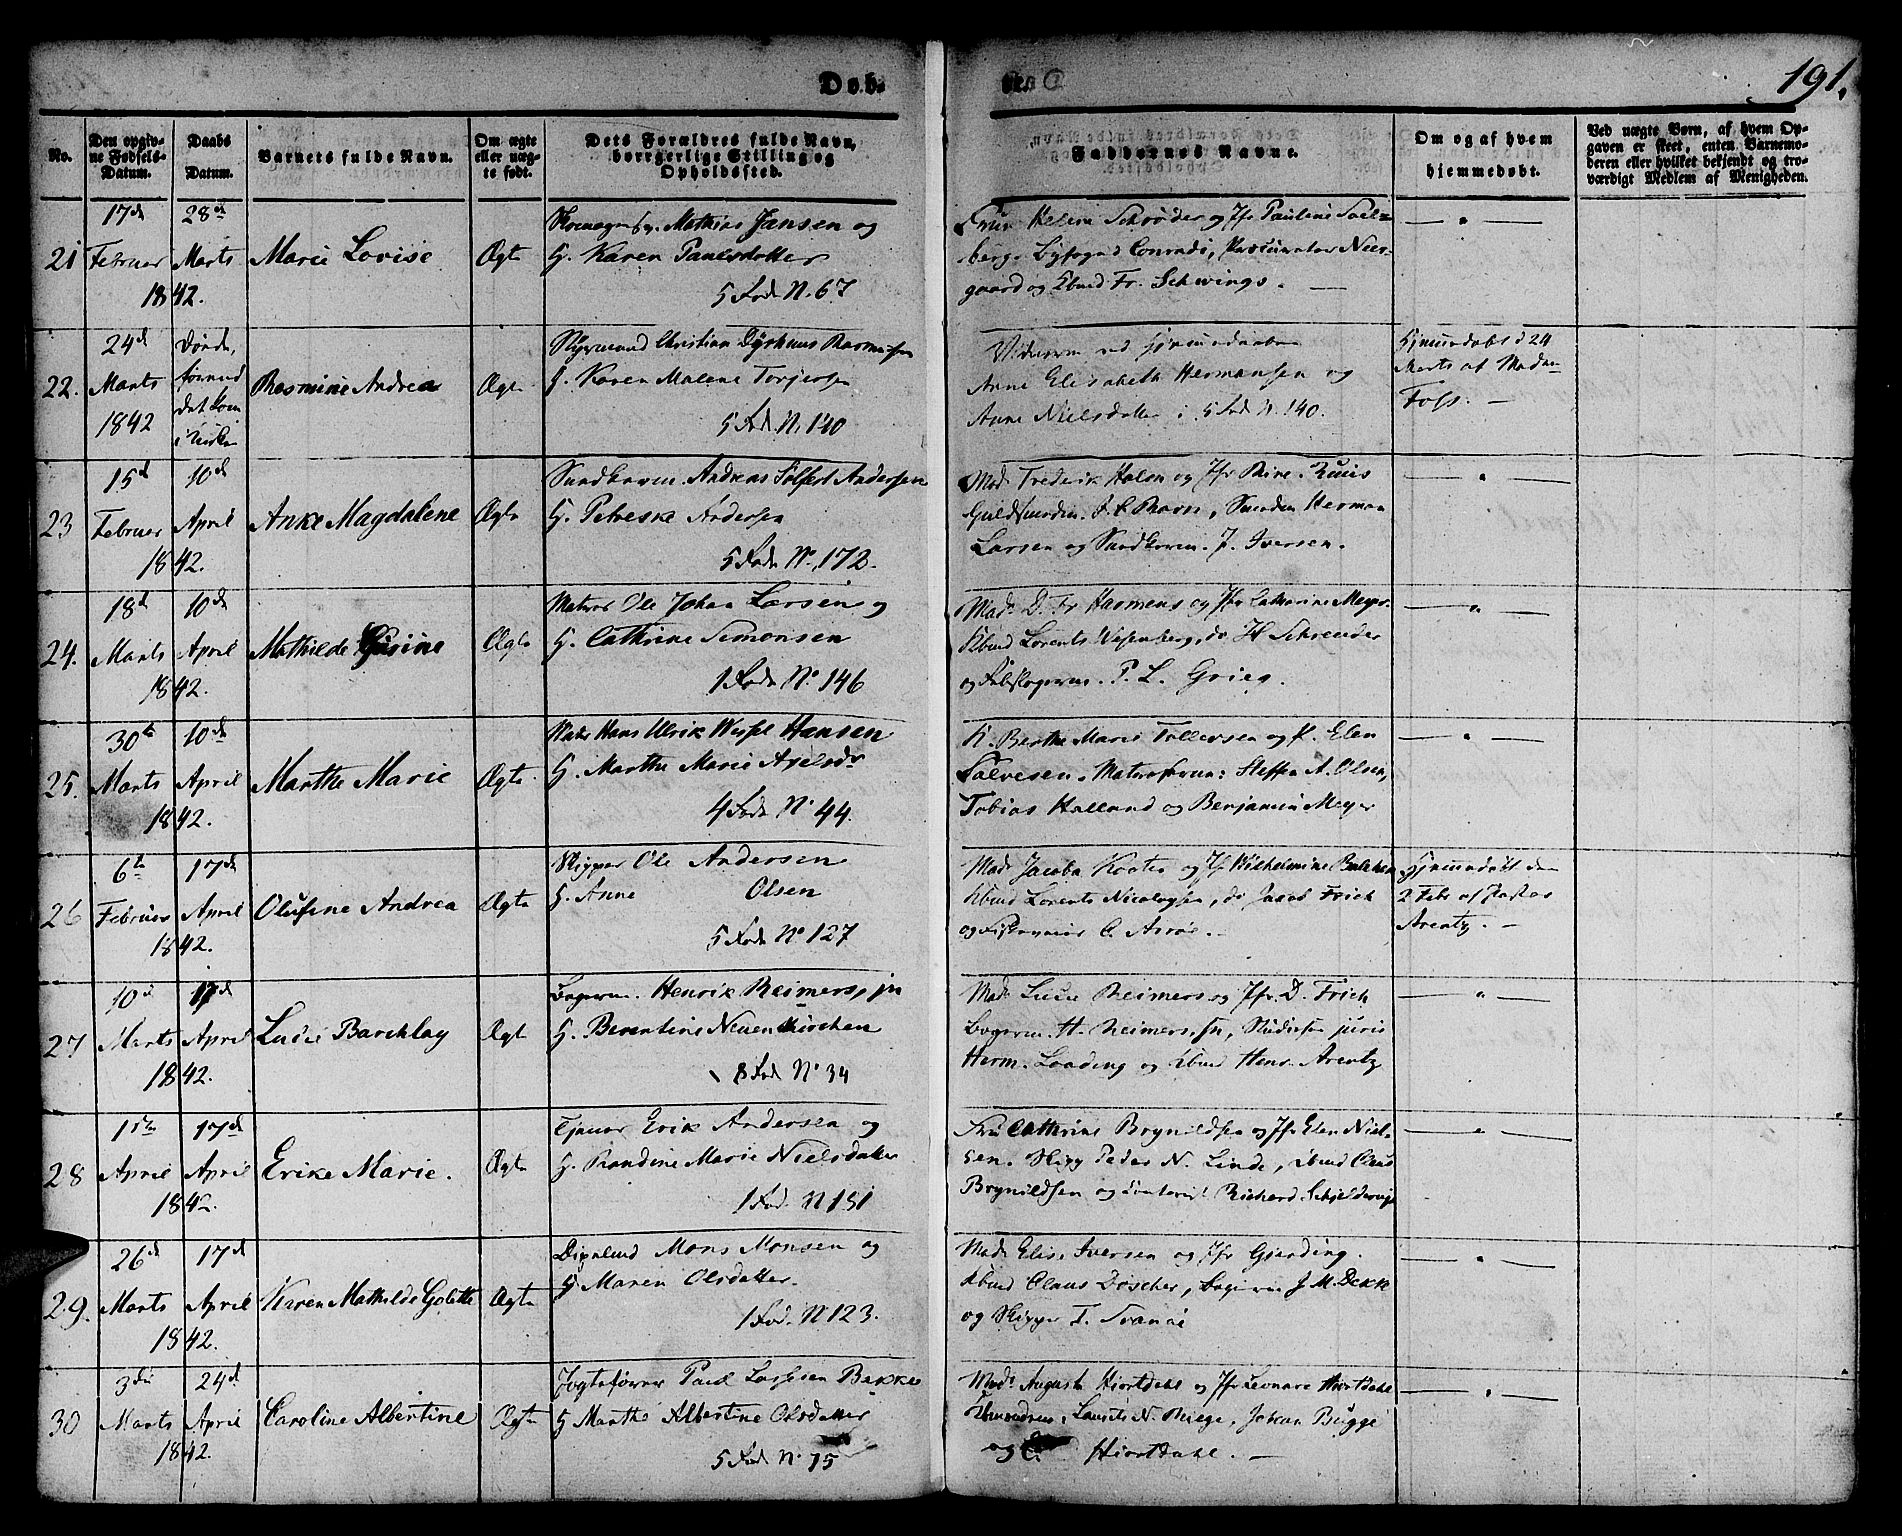 Døb-
191.
No.
Den opgiv-
ne Fødsels-
Datum.
Daabs
Datum.
Barnets fulde Navn.
Om ægte
eller uæg-
te født.
Dets Forældres fulde Navn,
borgerlige Stilling og
Opholdssted.
Faddernes Navne.
Om og af hvem
hjemmedøbt.
Ved uægte Børn, af hvem Op-
gaven er skeet, enten Barnemo-
deren eller hvilket bekjendt og tro-
værdigt Medlem af Menigheden.
21
17d
Februar
1842.
28d
Marts
Marie Lovise
Ægte
Mathias Jansen og
H. Karen Paulsdatter
5 Rode N. 67
Fru Helene Schrøder og Jfr Pauline Soel-
berg. Byfoged Conradi, Procurator Niis-
gaard og Kbmd Fr. Schwings.
22.
24d
Marts
1842
Døde,
førend
det kom
i Kirken
Rasmine Andrea
Ægte
Styrmand Christian Dyrhuus Rasmussen
H. Karen Malene Torjersen
5 Rod. N. 140
Vidnerne ved Hjemmedaaben
Anne Elisabeth Hermansen og
Anne Nielsdatter i 5 Rod N. 140.
Hjemmedøbt d 24
Marts af Madm
Foss.
23
15d
Februar
1842.
10d
April
Anke Magdalene
Ægte
Andreas Tolfert Andersen
H. Petreske Andersen
5 Rode No. 172.
Mad. Frederik Holm og Jfr Stine Kuuis
Guldsmeden, Smeden Herman
Larsen og J. Iversen.
24.
18d
Marts
1842.
10d
April
Mathilde Gurine
Ægte
Matros Ole Johan Larsen og
H. Cathrine Simonsen
1 Rode No. 146
Mad. D. Fr Harmens og Jfr Catharine Meyer.
Kbmd Lorents Wesenberg, do H Schreuder
og P. L. Grieg.
25.
30te
Marts
1842.
10d
April
Marthe Marie
Ægte
Hans Ulrik Wessel Hansen
H. Marthe Marie Axelsdr
4 Rode No 44.
K. Berthe Marie Tollevsen og P. Elen
Salvesen. Matroserne: Steffen A. Olsen,
Tobias Halland og Benjamin Meyer
26
6te
Februar
1842.
17d
April
Olufine Andrea
Ægte
Skipper Ole Andersen
H. Anne Olsen
5 Rode No 127
Mad Jacoba Koster og Jfr Wilhelmine
Kbmd Lorents Nicolaysen, do Jacob Frich
og C. Asröe.
Hjemmedøbt den
2 Febr af Pastor
Arentz.
27
10d
Marts
1842.
17d
April
Lucie Barchlay
Ægte
Bagerm. Henrik Reimers, jn
H. Berentine Neuenkirchen
8 Rod No 34
Mad. Lucie Reimers og Jfr. D. Frich
Bagerm. H. Reimers, sn, Studiosus juris
Herm. Loading og Kbmd Henr. Arentz
28
1ste
April
1842.
17d
April
Erike Marie.
Ægte
Tjener Erik Andersen og
H. Randine Marie Nielsdatter
1 Rod. N 151
Fru Cathrine Brynildsen og Jfr Elen Niel-
sen. Skipp Peder N. Linde, Kbmd Claus
Brynildsen og Contorist Richard Schjelderup
29.
26d
Marts
1842.
17d
April
Karen Mathilde Golette
Ægte
Mons Monsen og
H. Maren Olsdatter.
1 Rod. N 123.
Mad. Elise Iversen og Jfr Gjerding.
Kbmd Claus Döscher, J. M. Dekke
og Skipper T. Svanöe
30
3die
Marts
1842.
24d
April
Caroline Albertine
Ægte
Paul Lassesen Bakke
H Marthe Albertine Olsdatter
5 Rode No. 75
Mad. Augusta Hiortdahl og Jfr Leonare Hiortdahl
Kbmændene, Laurits N. Riege, Johan Bugge
og C. Hiortdahl.